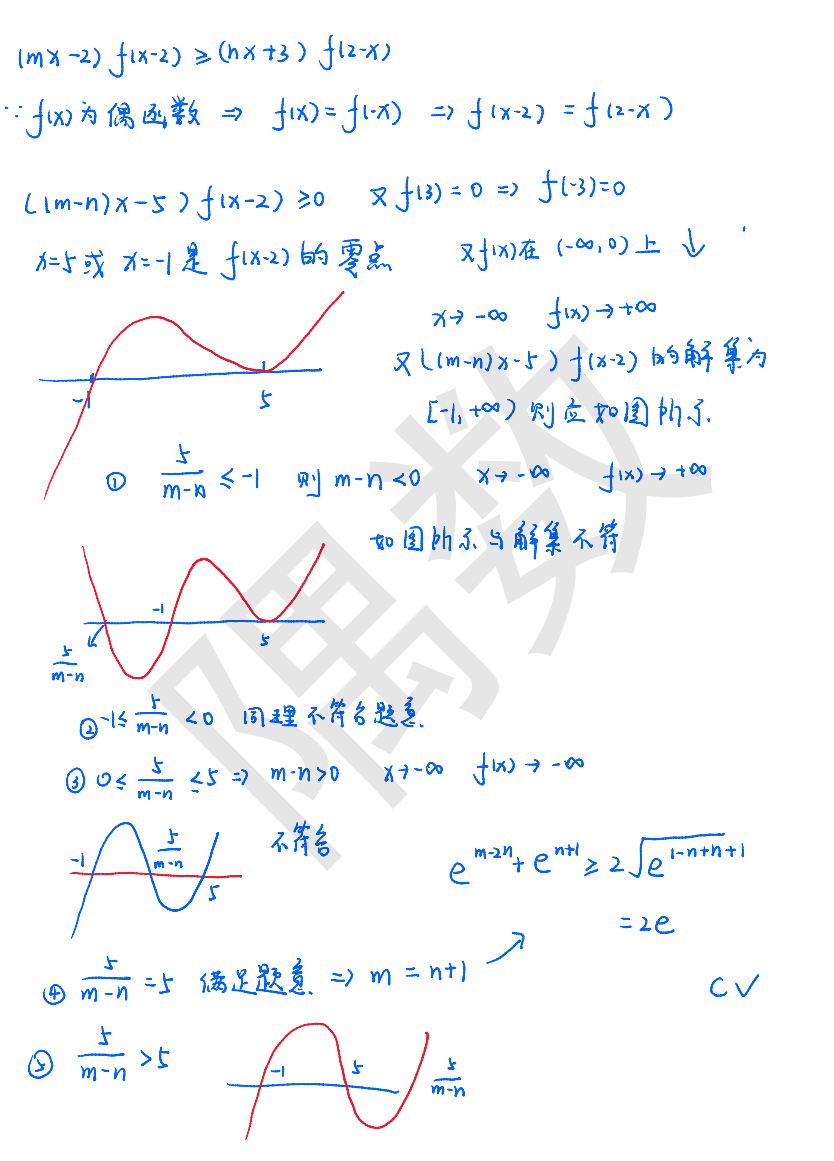 (mx-2) f(x-2) ≥ (nx+3) f(2-x)
∵ f(x)为偶函数 ⇒ f(x)=f(-x) ⇒ f(x-2) = f(2-x)
((m-n)x-5) f(x-2) ≥0 又f(3)=0 ⇒ f(-3)=0
x=5或 x=-1是 f(x-2)的零点 又f(x)在 (-∞,0)上 ↓
x→-∞ f(x)→+∞
又((m-n)x-5) f(x-2)的解集为
[-1,+∞) 则应如图所示
-1 5
① 5/(m-n) ≤ -1 则 m-n<0 x→-∞ f(x)→+∞
如图所示与解集不符
5/(m-n) -1 5
② -1≤ 5/(m-n) <0 同理不符合题意.
③ 0≤ 5/(m-n) ≤5 ⇒ m-n>0 x→-∞ f(x)→-∞
-1 5/(m-n) 5 不符合
e^{m-2n}+e^{n+1} ≥ 2√(e^{1-n+n+1})
=2e
④ 5/(m-n) =5 满足题意. ⇒ m=n+1
C√
⑤ 5/(m-n) >5
-1 5 5/(m-n)
隅数